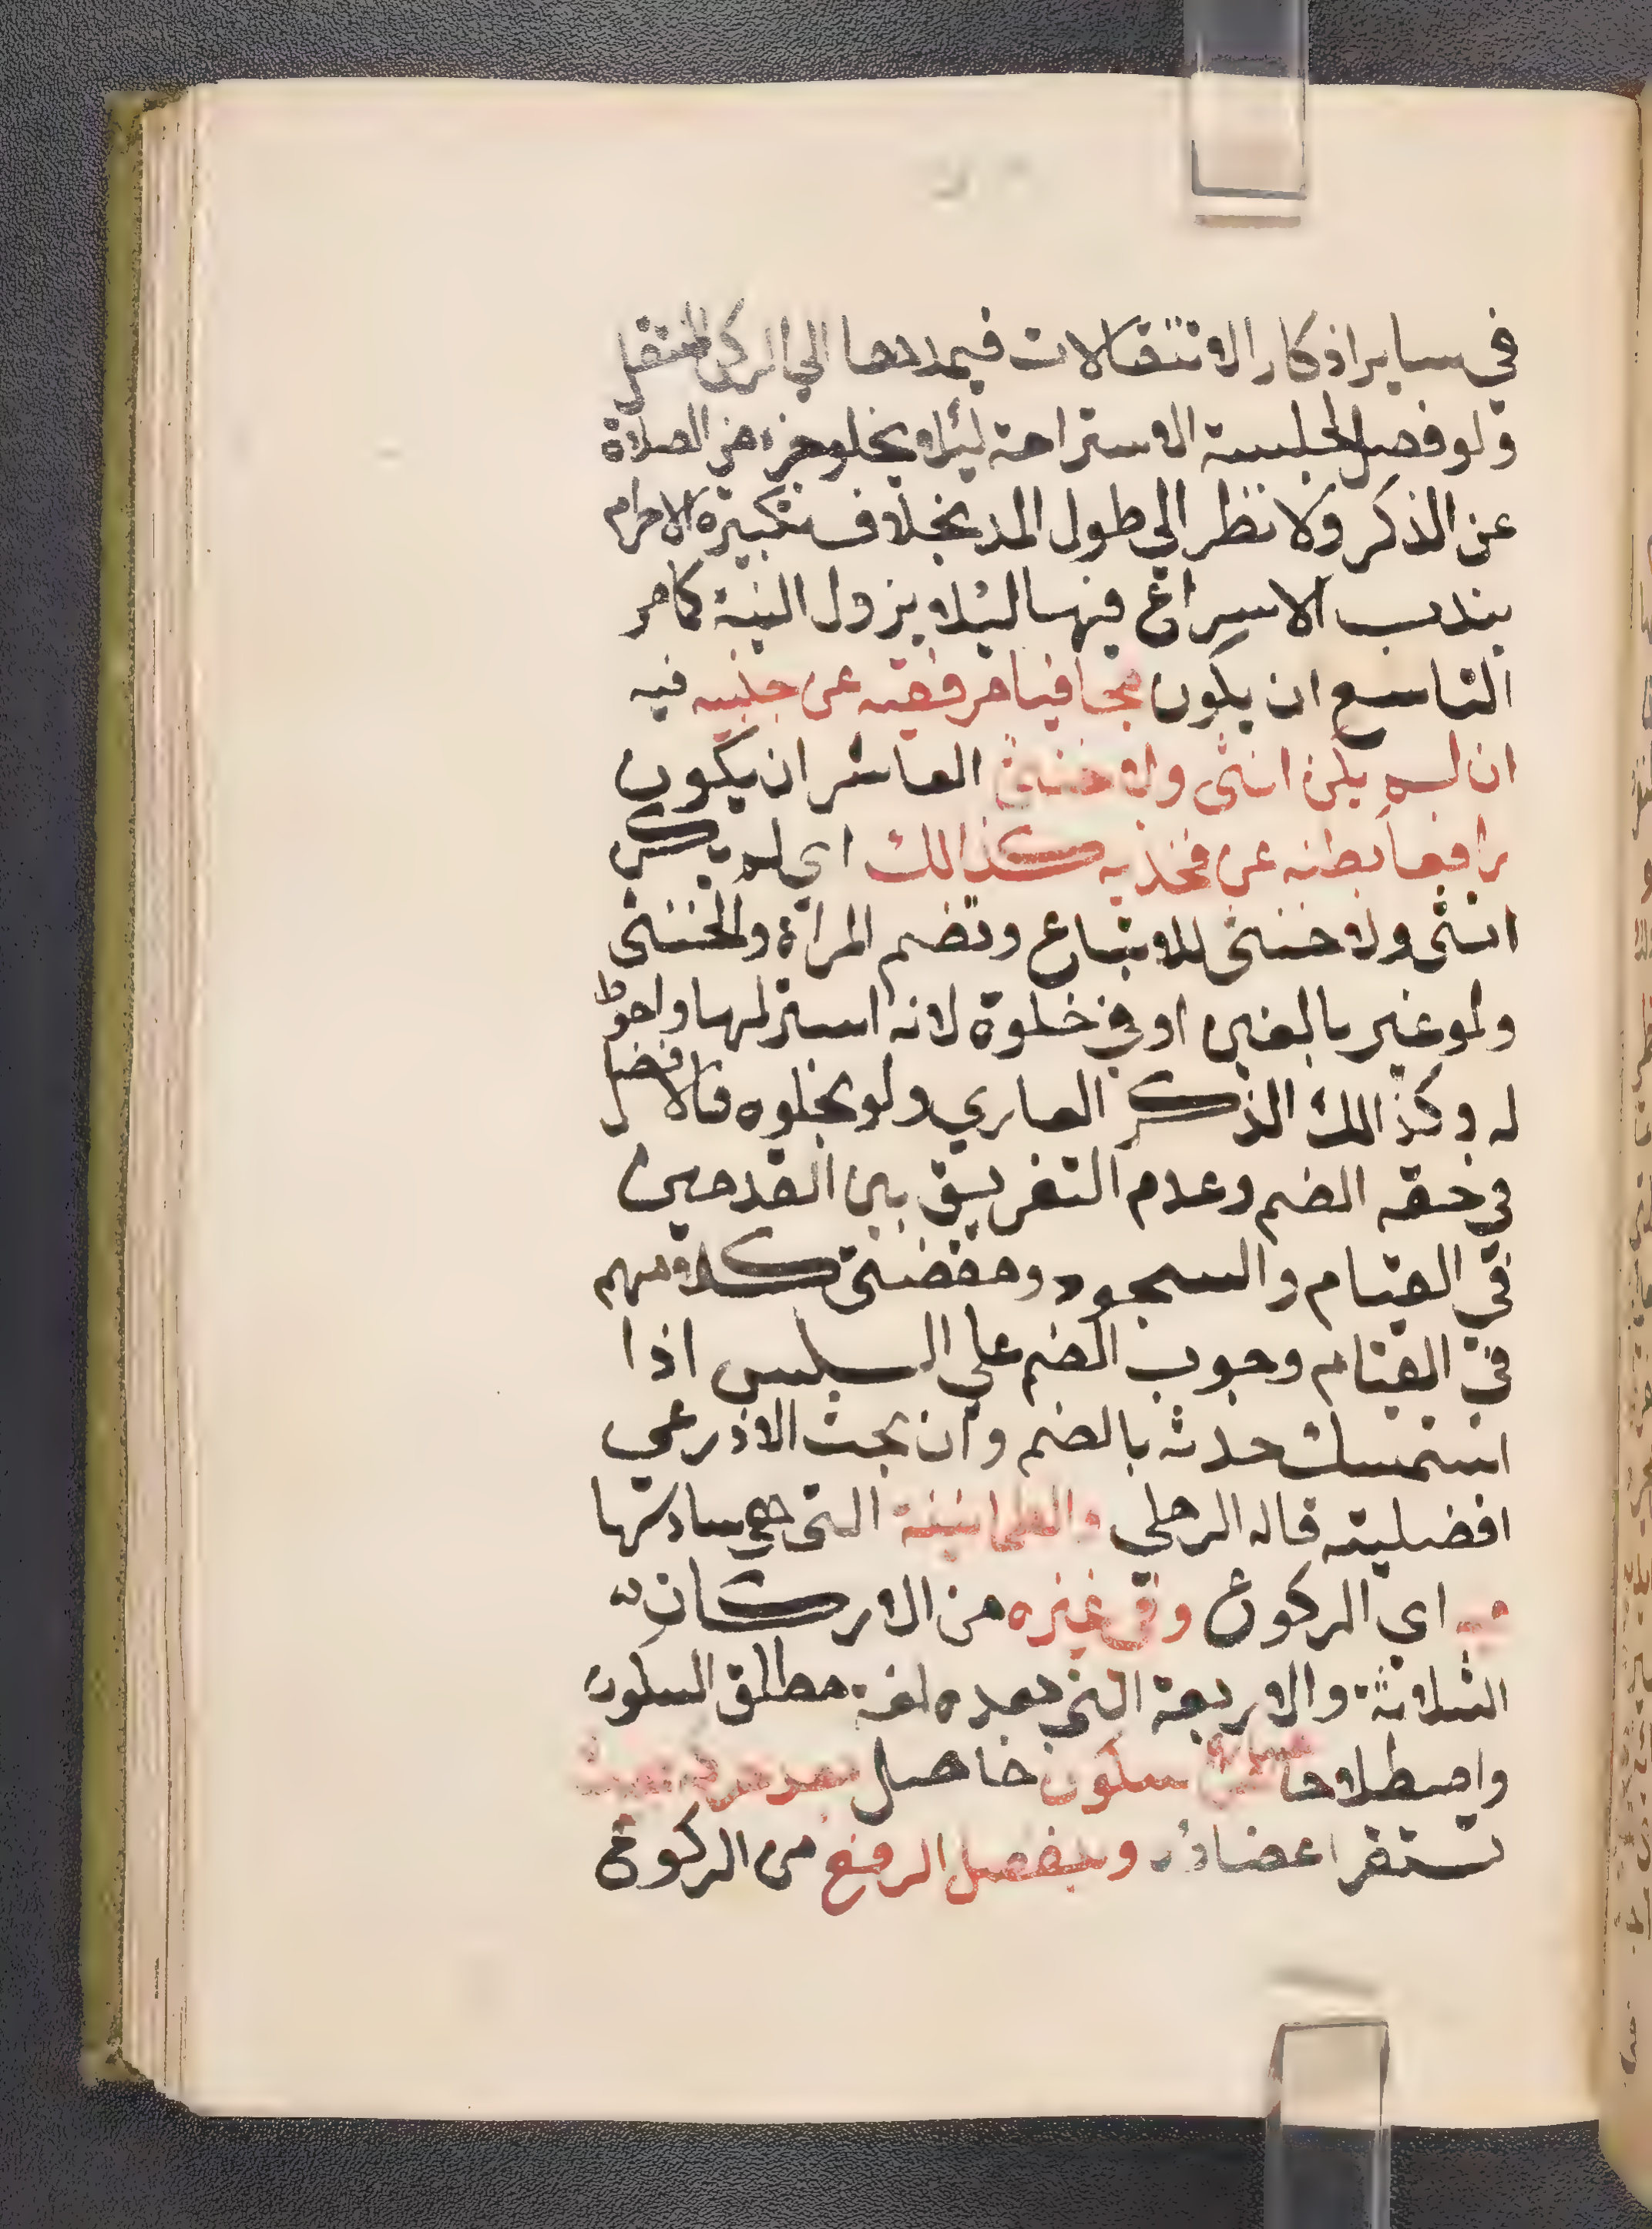 في ساير اذكار الانتقالات فيمدها الي الركن المنتقل
ولو فصل الجلسة الاستراحة ليئلا يخلو جزء من الصلاة
عن الذكر ولا نظر الي طول المد بخلاف تكبيرة الاحرام
يندب الاسراع فيها ليئلا يزول النية كامر
التاسع ان يكون مجافيا مرفقيه عن جنبيه فيه
ان لم يكن انثى ولا خنثى العاشر ان يكون
رافعا بطنه عن فخذيه كذالك اي لم يكن
انثى ولا خنثى للاتباع وتضم المراة والخنثى
ولو غير بالغين او في خلوة لانه استر لها واحوط
له وكذالك الذكر العاري ولو بخلوه فالافضل
في حقه الضم وعدم التفريق بين القدمين
في القيام والسجود ومقضى كلامهم
في القيام وجوب الضم علي السلس اذا
استمسك حدثه بالضم وان بحث الاذرعي
افضليته قاله الرملي والطمانينة التي هي سادستها
فيه اي الركوع وفي غيره من الاركان
الثلاثة والاربعة التي بعده لغة مطلق السكون
واصطلاحا سكون حاصل بعد حركة بحيث
تستقر اعضاؤه وينفصل الرفع من الركوع